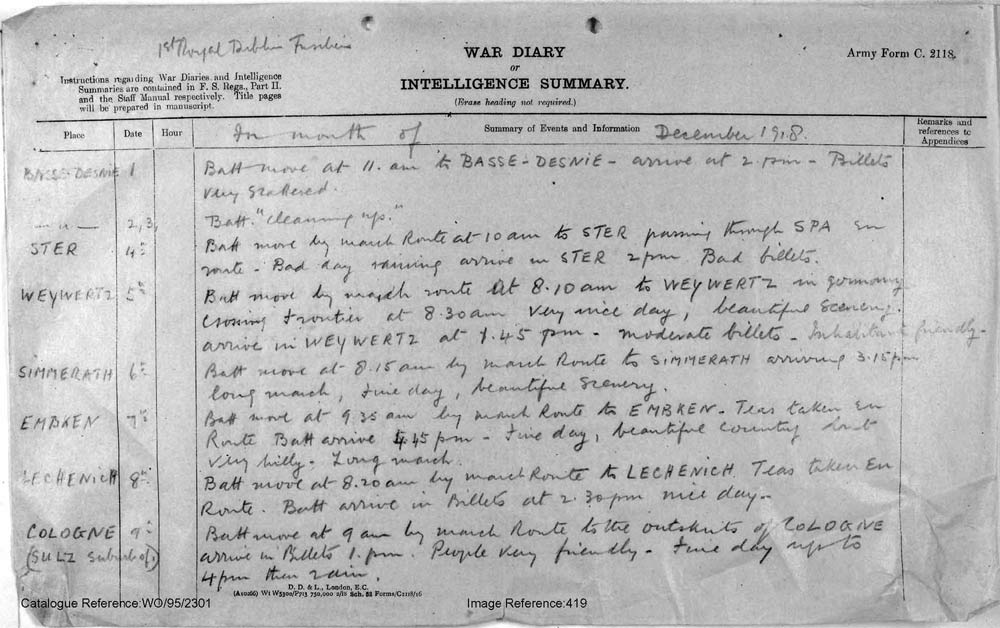 1st Royal Dublin Fusiliers
WAR DIARY
or
INTELLIGENCE SUMMARY.
(Erase heading not required.)
Army Form C. 2118.
Instructions regarding War Diaries and Intelligence
Summaries are contained in F. S. Regs., Part II.
and the Staff Manual respectively. Title pages
will be prepared in manuscript.
Place Date Hour Summary of Events and Information Remarks and references to Appendices
In month of December 1918.
BASSE-DESNIE 1 Batt move at 11. am to BASSE-DESNIE - arrive at 2. pm - Billets
very scattered.
— " — 2, 3, Batt. "cleaning up."
STER 4th Batt move by march Route at 10 am to STER passing through SPA en
route - Bad day raining arrive in STER 2 pm Bad billets.
WEYWERTZ 5th Batt move by march route at 8.10 am to WEYWERTZ in germany
crossing frontier at 8.30 am very nice day, beautiful scenery.
arrive in WEYWERTZ at 1.45 pm - moderate billets - Inhabitant friendly -
SIMMERATH 6th Batt move at 8.15 am by march Route to SIMMERATH arriving 3.15 pm
long march, fine day, beautiful scenery.
EMBKEN 7th Batt move at 9.35 am by march Route to EMBKEN - Teas taken En
Route Batt arrive 4.45 pm - fine day, beautiful country but
very hilly - Long march.
LECHENICH 8th Batt move at 8.20 am by march Route to LECHENICH Teas taken En
Route. Batt arrive in Billets at 2.30 pm nice day -
COLOGNE 9th Batt move at 9 am by march Route to the outskirts of COLOGNE
(SULZ suburb of) arrive in Billets 1. pm. People very friendly - Fine day up to
4 pm then rain.
D. D. & L., London, E.C.
(A10266) Wt W5300/P713 750,000 2/18 Sch. 52 Forms/C2118/16
Catalogue Reference:WO/95/2301
Image Reference:419